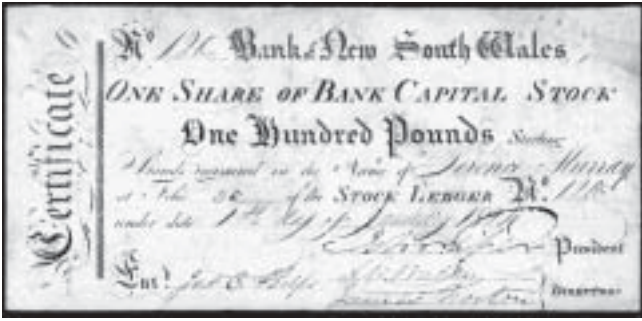 Certificate
No. 120 Bank of New South Wales
ONE SHARE OF BANK CAPITAL STOCK
One Hundred Pounds Sterling
Stands registered in the Name of Terence Murray
at Folio of the STOCK LEDGER No. 120
under date 1st day of January
President
Ent.d
James Norton Directors